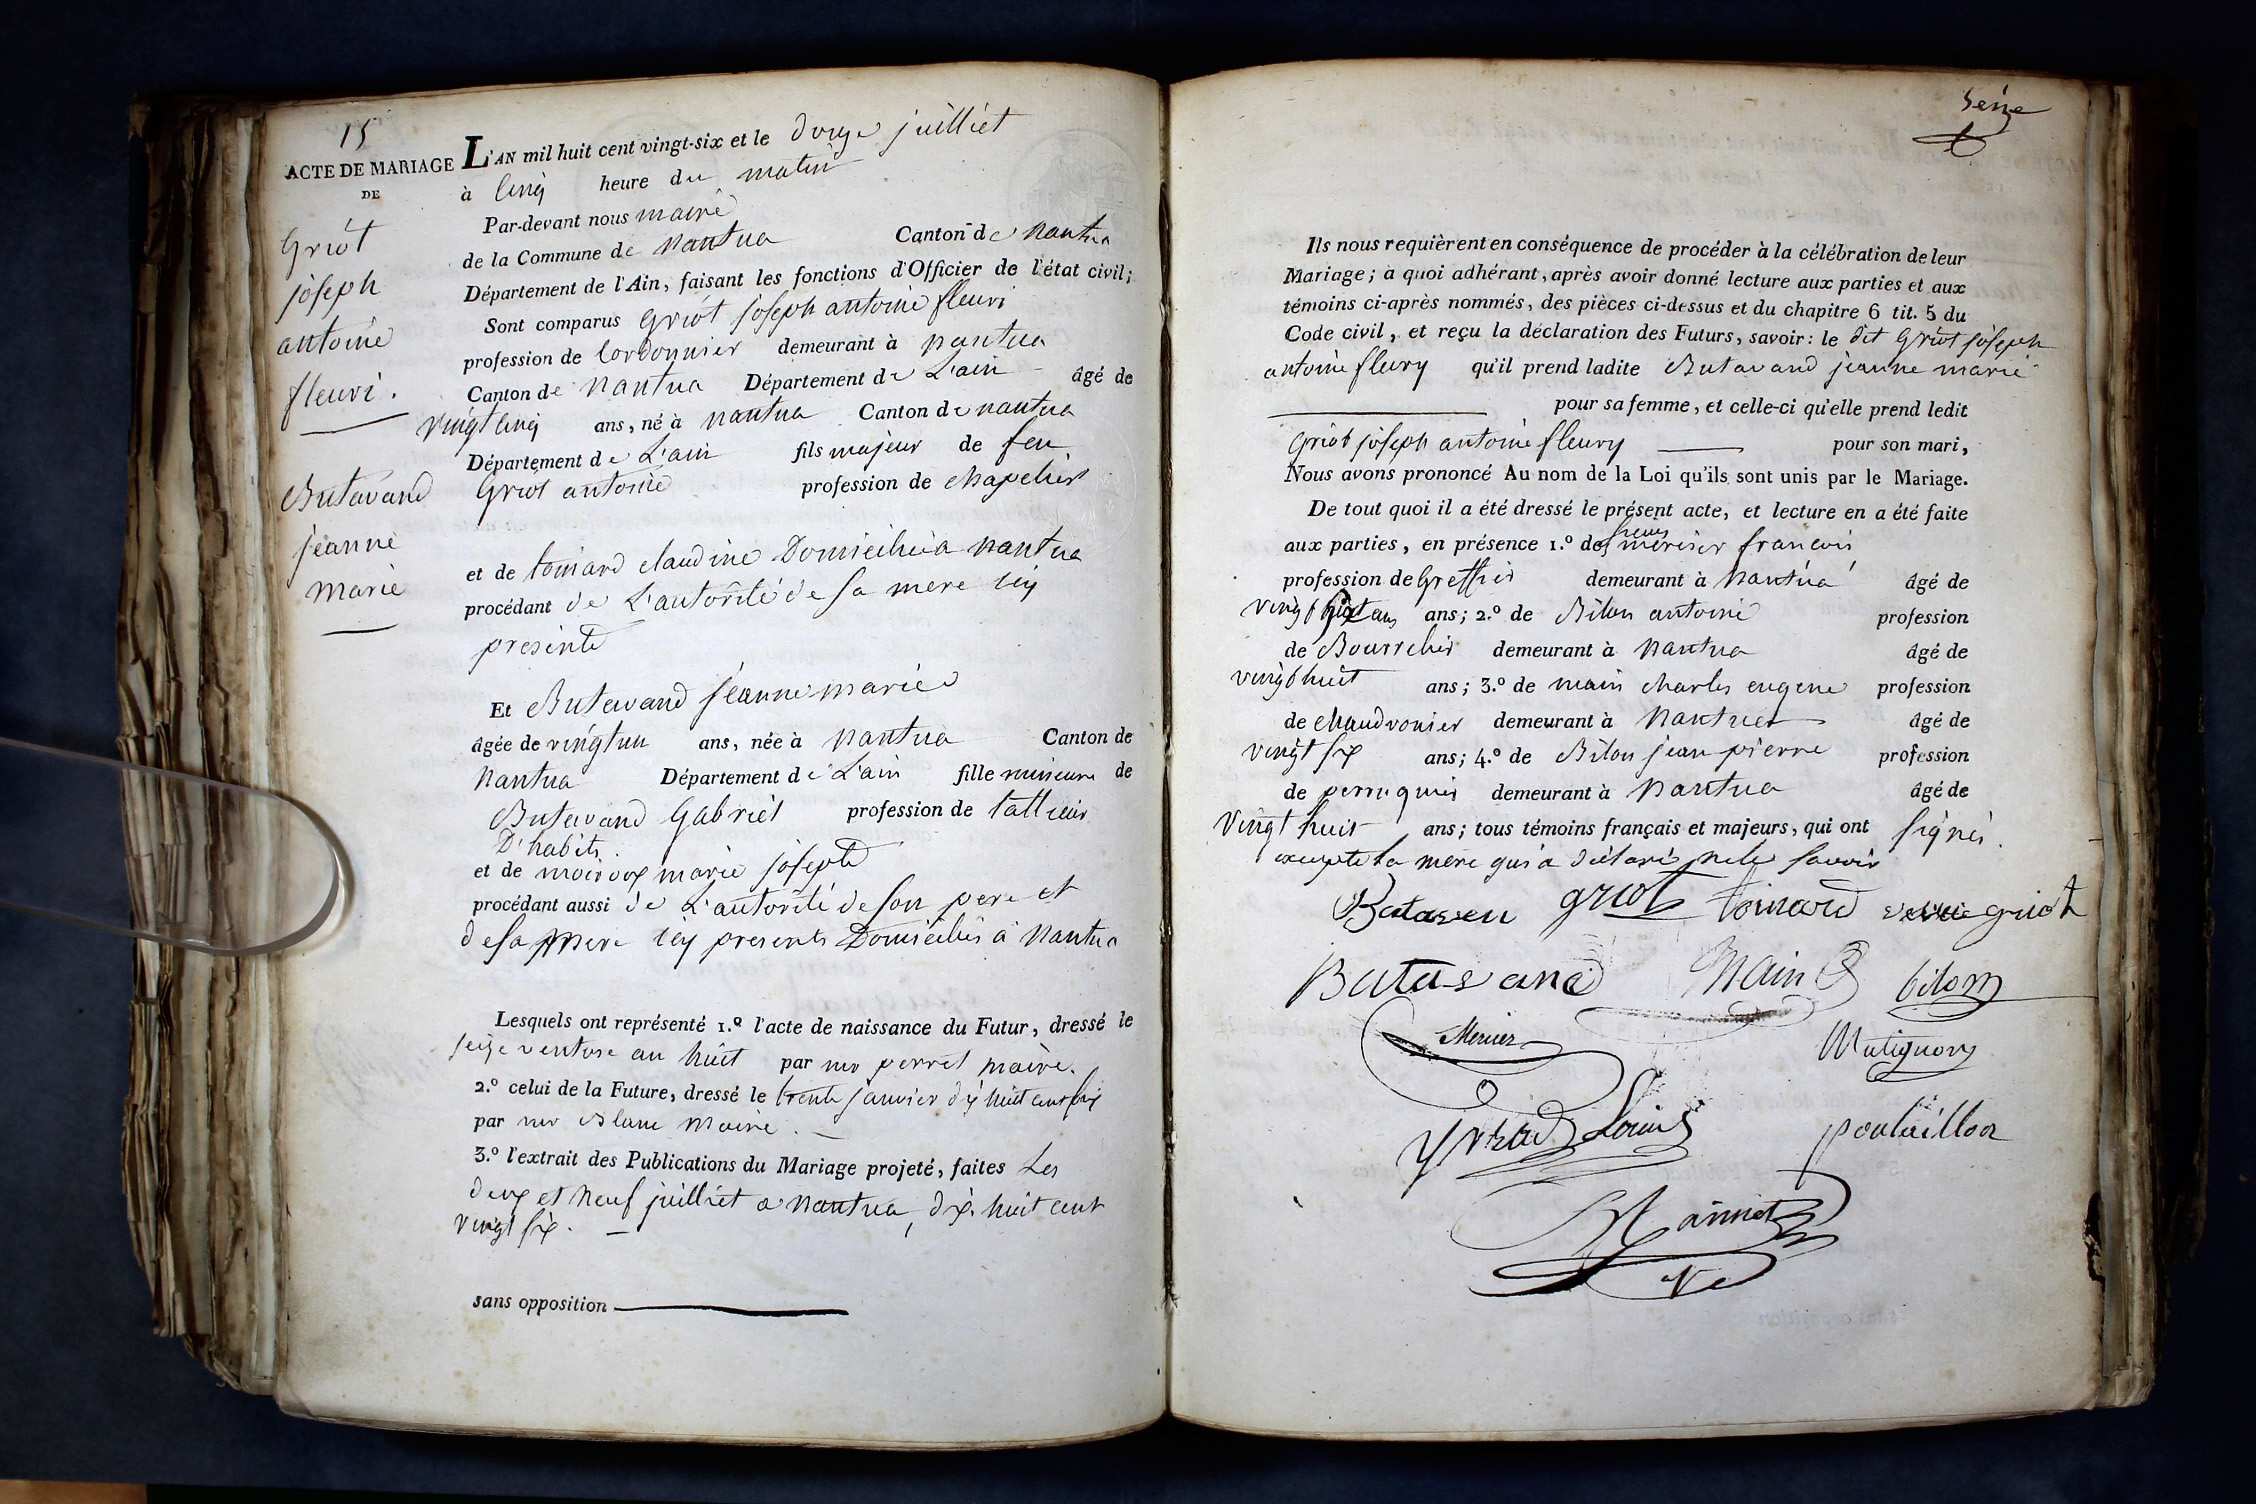 15
ACTE DE MARIAGE
DE
Griot
joseph
antoine
fleuri.
Butavand
jeanne
marie
L'AN mil huit cent vingt-six et le douze juilliet
à cinq heure du matin
Par-devant nous maire
de la Commune de nantua Canton de nantua
Département de l'Ain, faisant les fonctions d'Officier de l'état civil;
Sont comparus Griot joseph antoine fleuri
profession de Cordonnier demeurant à nantua
Canton de nantua Département de L'ain âgé de
vingt cinq ans, né à nantua Canton de nantua
Département de L'ain fils majeur de feu
Griot antoine profession de chapelier
et de toinard claudine Domiciliée à nantua
procédant de L'autorité de sa mere icy
presente
Et Butavand jeanne marie
âgée de vingt un ans, née à nantua Canton de
nantua Département de L'ain fille mineure de
Butavand Gabriel profession de tallieur
D'habits.
et de moiroux marie josephte
procédant aussi de L'autorité de son pere et
de sa mere icy presents Domiciliés à nantua
Lesquels ont représenté 1.º l'acte de naissance du Futur, dressé le
seize ventose an huit par mr perret maire.
2.º celui de la Future, dressé le trente janvier dix huit cent six
par mr Blanc maire.
3.º l'extrait des Publications du Mariage projeté, faites Les
deux et neuf juilliet a nantua, dix huit cent
vingt six.
sans opposition
Seize
Ils nous requièrent en conséquence de procéder à la célébration de leur
Mariage; à quoi adhérant, après avoir donné lecture aux parties et aux
témoins ci-après nommés, des pièces ci-dessus et du chapitre 6 tit. 5 du
Code civil, et reçu la déclaration des Futurs, savoir: le dit Griot joseph
antoine fleury qu'il prend ladite Butavand jeanne marie
pour sa femme, et celle-ci qu'elle prend ledit
Griot joseph antoine fleury pour son mari,
Nous avons prononcé Au nom de la Loi qu'ils sont unis par le Mariage.
De tout quoi il a été dressé le présent acte, et lecture en a été faite
aux parties, en présence 1.º de francois
profession de Greffier demeurant à nantua âgé de
vingt ans ans; 2.º de Bilon antoine profession
de Bourrelier demeurant à nantua âgé de
vingt huit ans; 3.º de main charles eugene profession
de chaudronier demeurant à nantua âgé de
vingt six ans; 4.º de Bilon jean pierre profession
de perruquier demeurant à nantua âgé de
vingt huit ans; tous témoins français et majeurs, qui ont signés.
excepte la mere qui a déclaré ne le savoir
griot toinard veuve griot
Butavand Main bilon
Mercier
Matignon
Louis
poulaillon